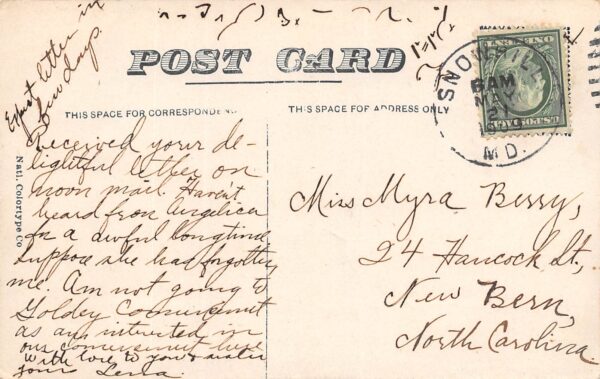 Expect letter in
few days.
POST CARD
THIS SPACE FOR CORRESPONDENCE
THIS SPACE FOR ADDRESS ONLY
SNOW HILL
8 AM
MAY
2
1909
MD.
Natl. Colortype Co
Received your de-
lightful letter on
noon mail. Haven't
heard from Angelica
in a awful longtime
suppose she has forgotten
me. Am not going to
Goldey Commencement
as am intrested in
our commencement here
With love to you & sister
yours Lena.
Miss Myra Berry,
24 Hancock St.,
New Bern,
North Carolina.